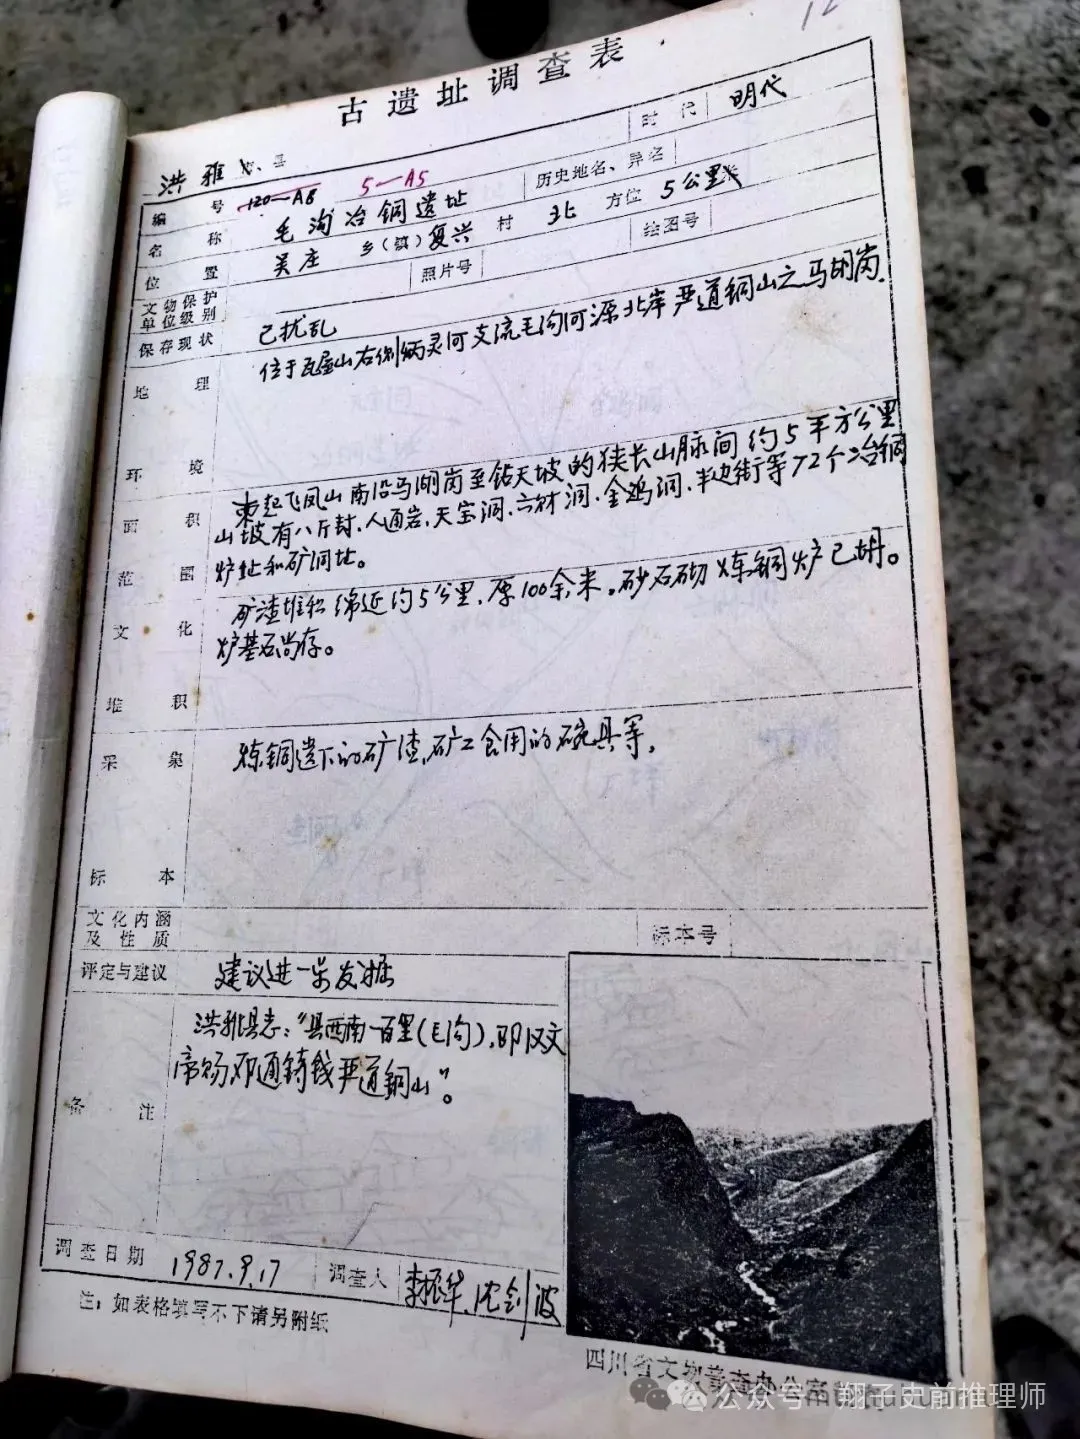 12
古遗址调查表
洪雅 市、县 时代 明代
编号 120—A8 5—A5 历史地名、异名
名称 毛沟冶铜遗址
位置 吴庄 乡(镇) 复兴 村 北 方位 5公里
文物保护单位级别 照片号 绘图号
保存现状 已扰乱
地理环境 位于瓦屋山右侧炳灵河支流毛沟河源北岸严道铜山之马胡岗.
面积范围 東起飞凤山南沿马湖岗至钻天坡的狭长山脉间约5平方公里
山坡有八斤封.人通岩.天宝洞.六材洞.金鸡洞.半边街等72个冶铜
炉址和矿洞址。
文化堆积 矿渣堆积绵延约5公里.厚100余米。砂石砌炼铜炉已坍。
炉基石尚存。
采集标本 炼铜遗下的矿渣.矿工食用的碗具等,
文化内涵及性质 标本号
评定与建议 建议进一步发掘
备注 洪雅县志:“县西南一百里(毛沟).即汉文
帝赐邓通铸钱严道铜山”。
调查日期 1987.9.17 调查人 李振华.沈剑波
注:如表格填写不下请另附纸
四川省文物普查办公室
公众号·翔子史前推理师